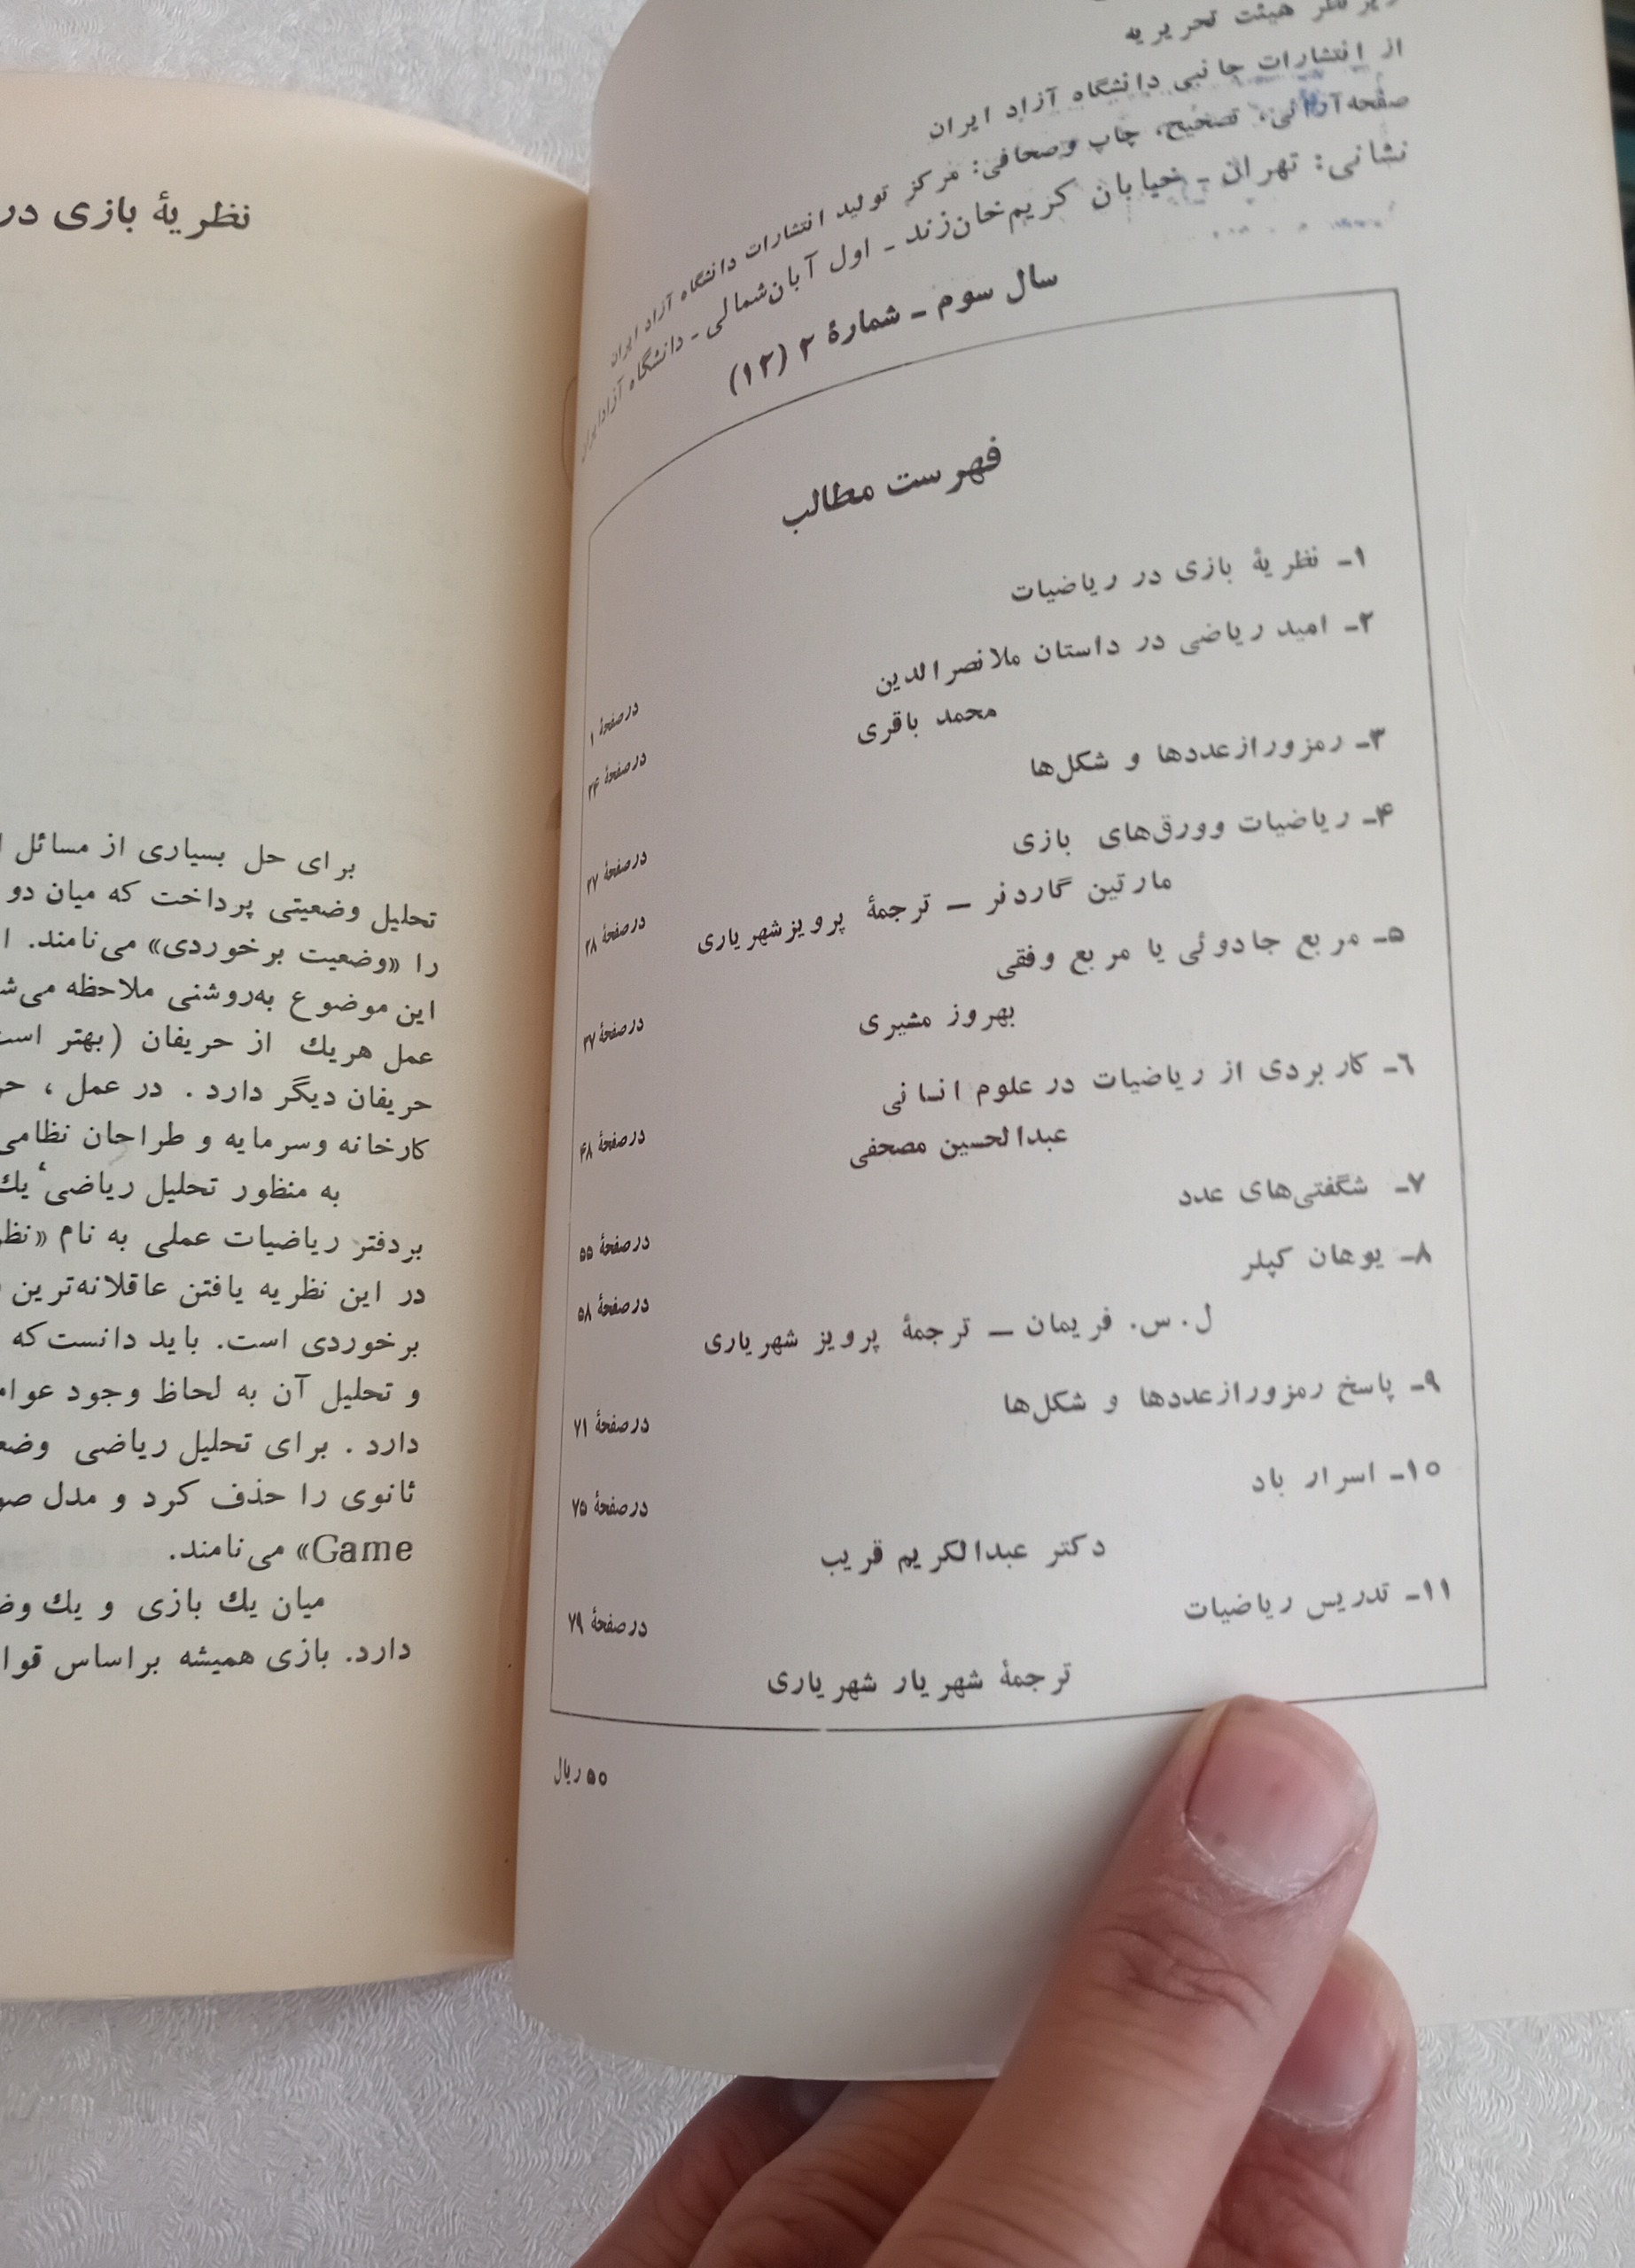 زیر نظر هیئت تحریریه
از انتشارات جانبی دانشگاه آزاد ایران
صفحه‌آرائی، تصحیح، چاپ وصحافی: مرکز تولید انتشارات دانشگاه آزاد ایران
نشانی: تهران ـ خیابان کریم‌خان‌زند ـ اول آبان‌شمالی ـ دانشگاه آزادایران
سال سوم ـ شمارهٔ ۲ (۱۲)
فهرست مطالب
۱ـ نظریهٔ بازی در ریاضیات
درصفحهٔ ۱
۲ـ امید ریاضی در داستان ملانصرالدین
محمد باقری
درصفحهٔ ۲۴
۳ـ رمزورازعددها و شکل‌ها
درصفحهٔ ۲۷
۴ـ ریاضیات وورق‌های بازی
مارتین گاردنر — ترجمهٔ پرویزشهریاری
درصفحهٔ ۲۸
۵ـ مربع جادوئی یا مربع وفقی
بهروز مشیری
درصفحهٔ ۳۷
۶ـ کاربردی از ریاضیات در علوم انسانی
عبدالحسین مصحفی
درصفحهٔ ۴۸
۷ـ شگفتی‌های عدد
درصفحهٔ ۵۵
۸ـ یوهان کپلر
ل. س. فریمان — ترجمهٔ پرویز شهریاری
درصفحهٔ ۵۸
۹ـ پاسخ رمزورازعددها و شکل‌ها
درصفحهٔ ۷۱
۱۰ـ اسرار باد
دکتر عبدالکریم قریب
درصفحهٔ ۷۵
۱۱ـ تدریس ریاضیات
ترجمهٔ شهریار شهریاری
درصفحهٔ ۷۹
۵۰ ریال
نظریهٔ بازی در
برای حل بسیاری از مسائل
تحلیل وضعیتی پرداخت که میان دو
را «وضعیت برخوردی» می‌نامند.
این موضوع به‌روشنی ملاحظه
عمل هریك از حریفان (بهتر
حریفان دیگر دارد . در عمل ،
کارخانه وسرمایه و طراحان نظامی
به منظور تحلیل ریاضی یك
بردفتر ریاضیات عملی به نام
در این نظریه یافتن عاقلانه‌ترین
برخوردی است. باید دانست‌که
و تحلیل آن به لحاظ وجود
دارد . برای تحلیل ریاضی
ثانوی را حذف کرد و مدل
Game» می‌نامند.
میان یك بازی و یك
دارد. بازی همیشه براساس